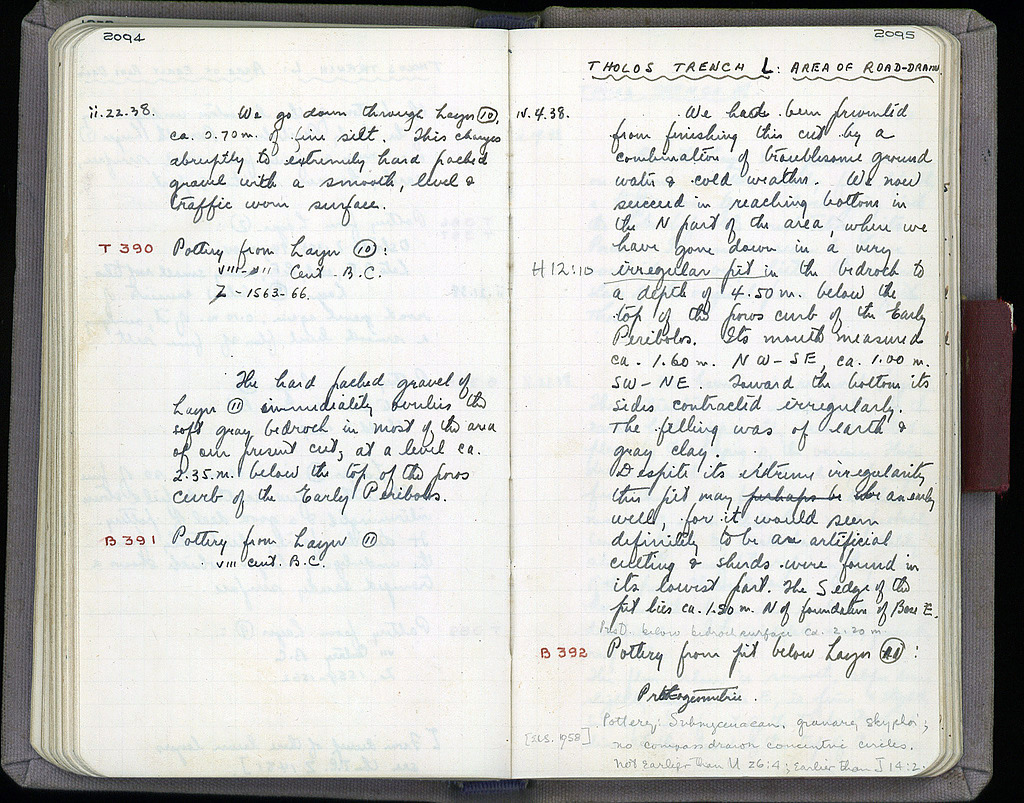 2094
ii.22.38. We go down through Layer (10),
ca. 0.70 m. of fine silt. This changes
abruptly to extremely hard packed
gravel with a smooth, level &
traffic worn surface.
T 390 Pottery from Layer (10):
VIII- Cent. B.C.
Z - 1563-66.
The hard packed gravel of
Layer (11) immediately overlies the
soft gray bedrock in most of the area
of our present cut, at a level ca.
2.35 m. below the top of the poros
curb of the Early Peribolos.
B 391 Pottery from Layer (11)
VIII cent. B.C.
2095
THOLOS TRENCH L: AREA OF ROAD-DRAIN
IV.4.38. We had been prevented
from finishing this cut by a
combination of troublesome ground
water & cold weather. We now
succeed in reaching bottom in
the N part of the area, where we
have gone down in a very
H 12:10 irregular pit in the bedrock to
a depth of 4.50 m. below the
top of the poros curb of the Early
Peribolos. Its mouth measured
ca. 1.60 m. NW-SE, ca. 1.00 m.
SW-NE. Toward the bottom its
sides contracted irregularly.
The filling was of earth &
gray clay.
Despite its extreme irregularity
this pit may perhaps be be an early
well, for it would seem
definitely to be an artificial
cutting & sherds were found in
its lowest part. The S edge of the
pit lies ca. 1.50 m. N of foundation of Base E.
PresD. below bedrock surface ca. 2.20 m.
B 392 Pottery from pit below Layer (11):
Protogeometric.
Pottery: Submycenaean. granary skyphoi;
[ELS. 1958] no compass drawn concentric circles.
Not earlier than U 26:4; earlier than J 14:2.